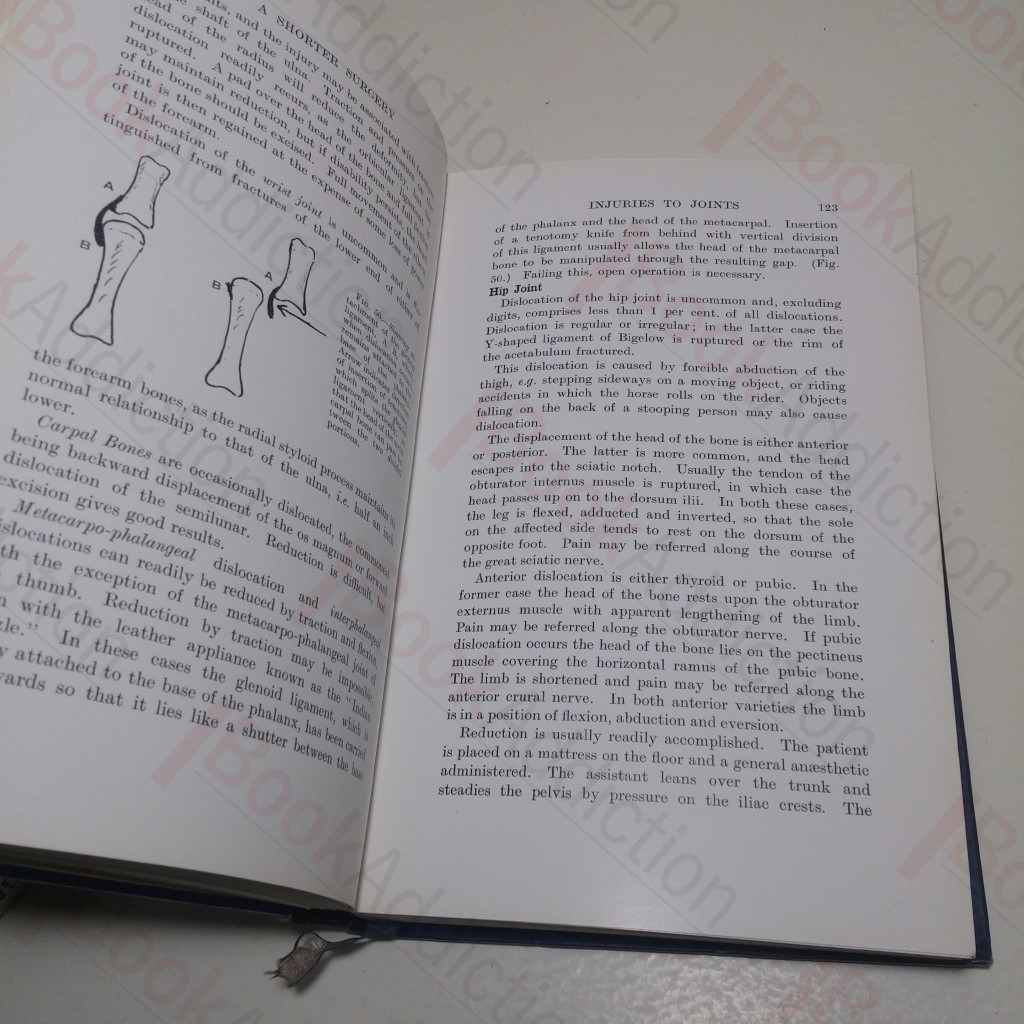 A SHORTER SURGERY
and the injury may be associated with
shaft of the ulna. Traction and pressure
of the radius will reduce the deformity, but
dislocation readily recurs, as the orbicular ligament is
ruptured. A pad over the head of the bone and full
may maintain reduction, but if disability persists the head
of the bone should be excised. Full movement of the
joint is then regained at the expense of some loss of power
of the forearm.
Dislocation of the wrist joint is uncommon and is
tinguished from fractures of the lower end of either of
A
B
B
A
Fig. 50.
the forearm bones, as the radial styloid process maintains its
normal relationship to that of the ulna, i.e. half an inch
lower.
Carpal Bones are occasionally dislocated, the commonest
being backward displacement of the os magnum or forward
dislocation of the semilunar. Reduction is difficult, but
excision gives good results.
Metacarpo-phalangeal dislocation and interphalangeal
dislocations can readily be reduced by traction and flexion,
with the exception of the metacarpo-phalangeal joint of
thumb. Reduction by traction may be impossible
with the leather appliance known as the "Indian
In these cases the glenoid ligament, which is
attached to the base of the phalanx, has been carried
so that it lies like a shutter between the base
INJURIES TO JOINTS 123
of the phalanx and the head of the metacarpal. Insertion
of a tenotomy knife from behind with vertical division
of this ligament usually allows the head of the metacarpal
bone to be manipulated through the resulting gap. (Fig.
50.) Failing this, open operation is necessary.
Hip Joint
Dislocation of the hip joint is uncommon and, excluding
digits, comprises less than 1 per cent. of all dislocations.
Dislocation is regular or irregular; in the latter case the
Y-shaped ligament of Bigelow is ruptured or the rim of
the acetabulum fractured.
This dislocation is caused by forcible abduction of the
thigh, e.g. stepping sideways on a moving object, or riding
accidents in which the horse rolls on the rider. Objects
falling on the back of a stooping person may also cause
dislocation.
The displacement of the head of the bone is either anterior
or posterior. The latter is more common, and the head
escapes into the sciatic notch. Usually the tendon of the
obturator internus muscle is ruptured, in which case the
head passes up on to the dorsum ilii. In both these cases,
the leg is flexed, adducted and inverted, so that the sole
on the affected side tends to rest on the dorsum of the
opposite foot. Pain may be referred along the course of
the great sciatic nerve.
Anterior dislocation is either thyroid or pubic. In the
former case the head of the bone rests upon the obturator
externus muscle with apparent lengthening of the limb.
Pain may be referred along the obturator nerve. If pubic
dislocation occurs the head of the bone lies on the pectineus
muscle covering the horizontal ramus of the pubic bone.
The limb is shortened and pain may be referred along the
anterior crural nerve. In both anterior varieties the limb
is in a position of flexion, abduction and eversion.
Reduction is usually readily accomplished. The patient
is placed on a mattress on the floor and a general anæsthetic
administered. The assistant leans over the trunk and
steadies the pelvis by pressure on the iliac crests. The
BookAddiction